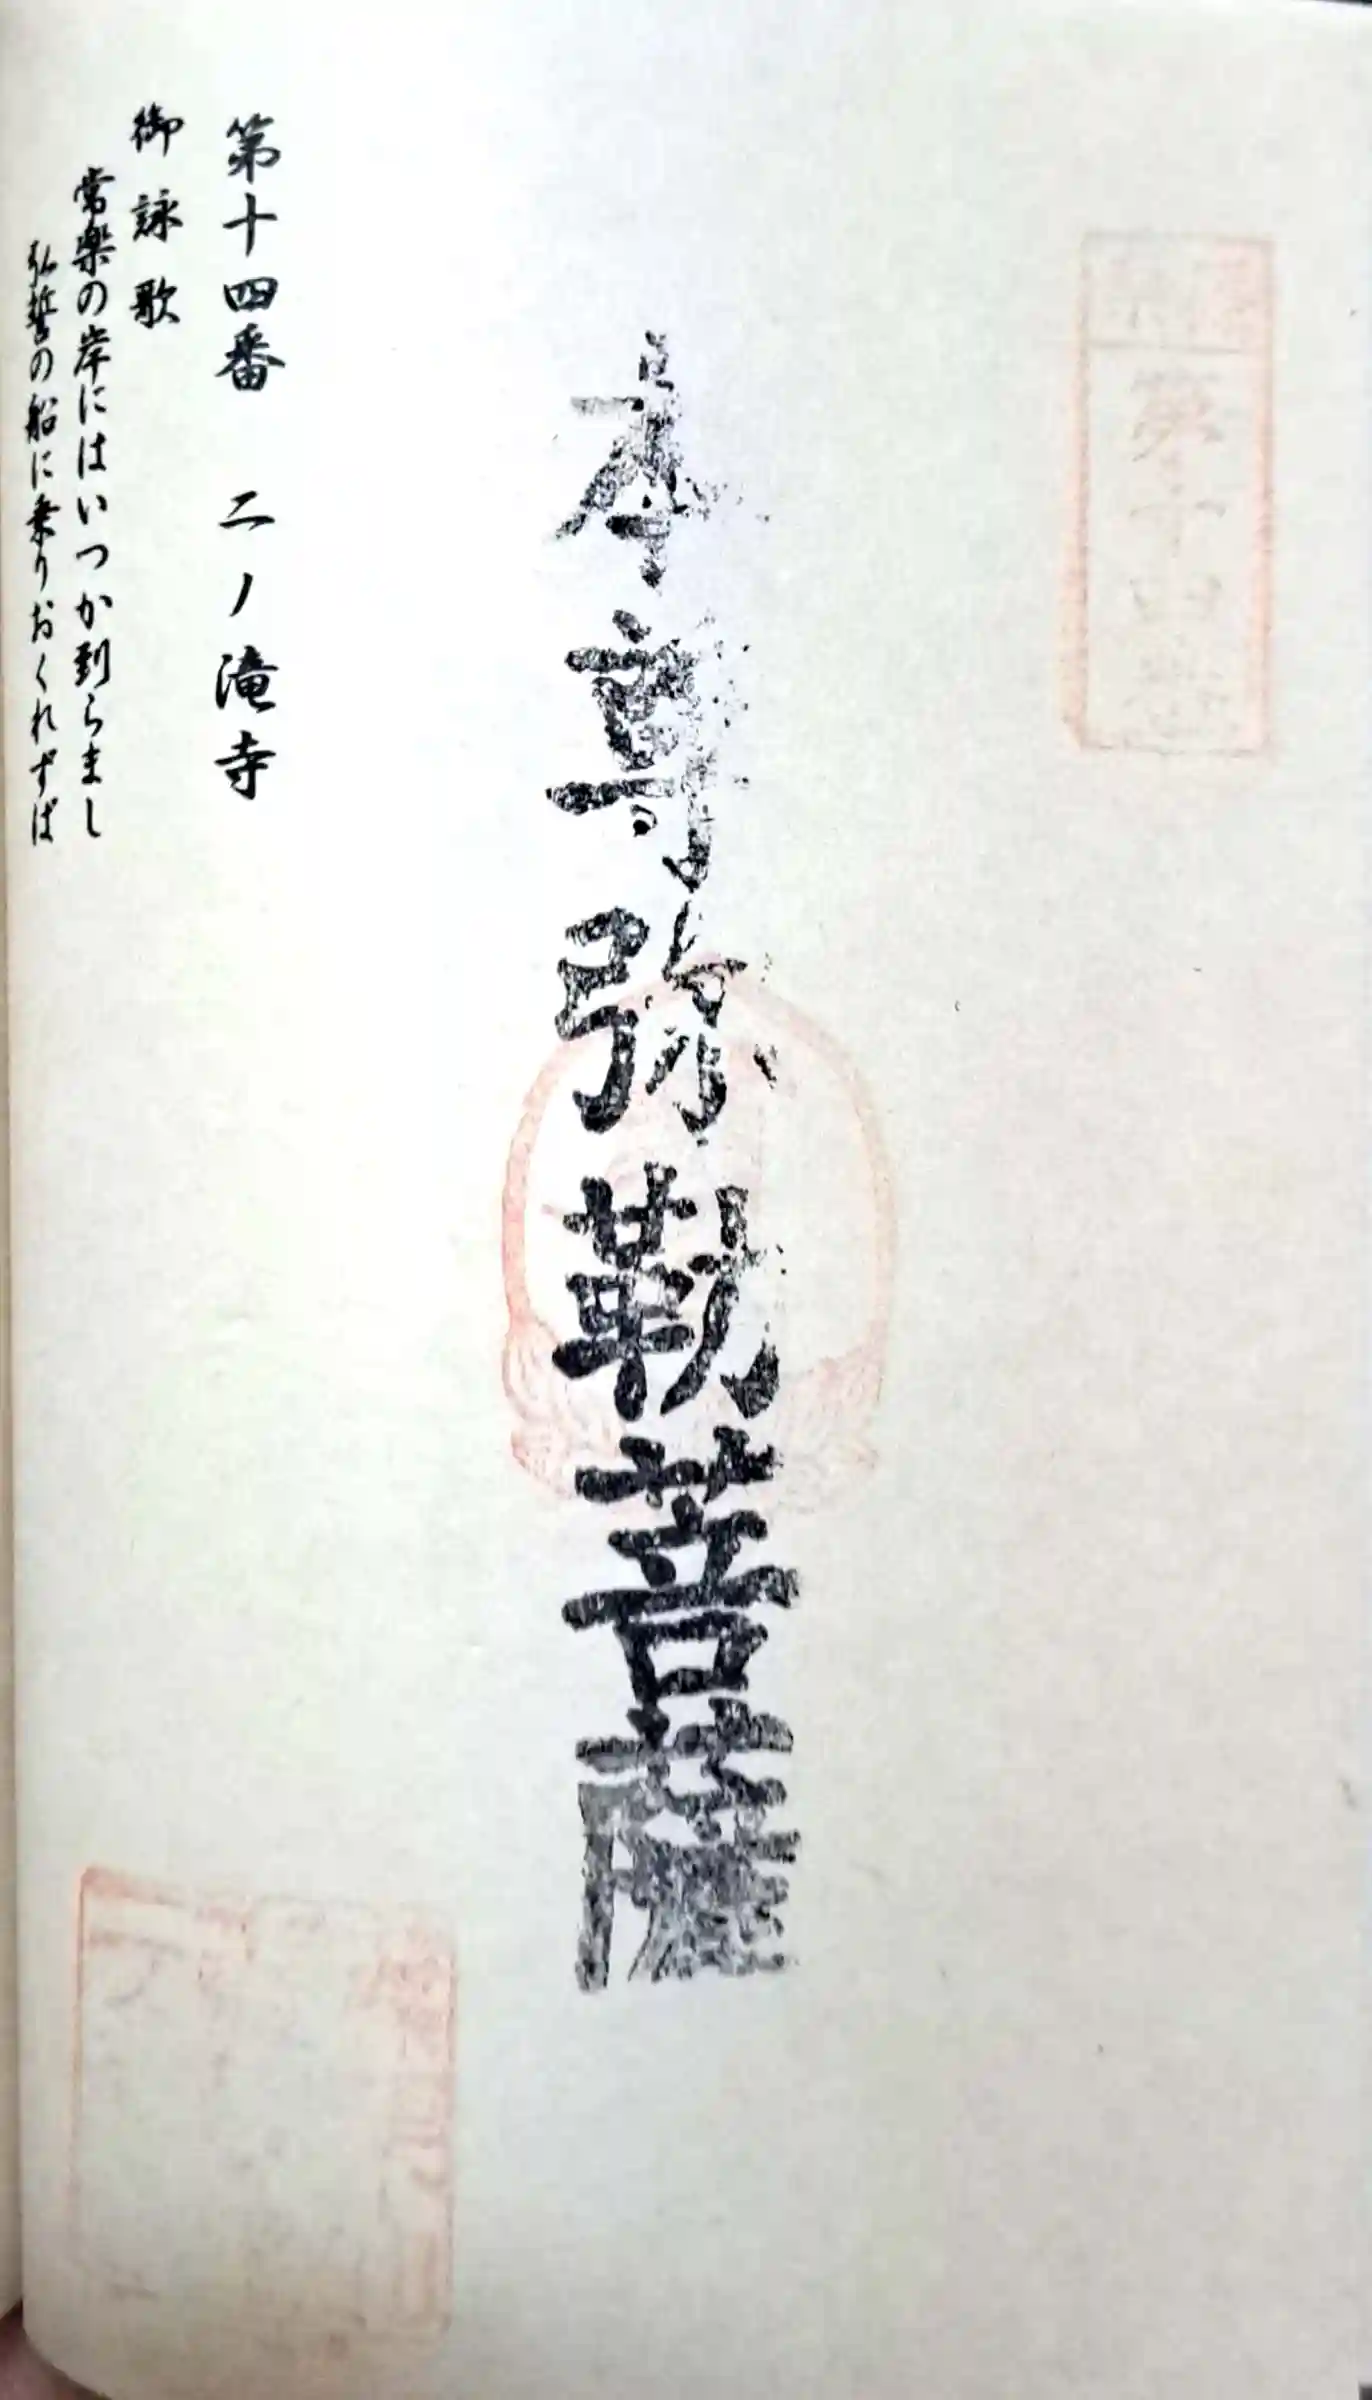 第十四番
本尊弥勒菩薩
第十四番 二ノ滝寺
御詠歌
常楽の岸にはいつか到らまし
弘誓の船に乗りおくれずば